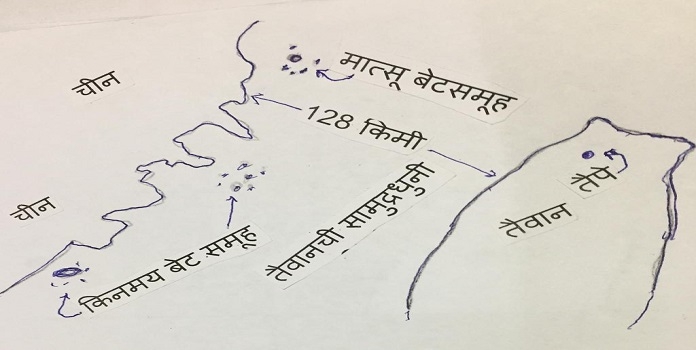 चीन
मात्सू बेटसमूह
128 किमी
चीन
तैपै
तैवान
तैवानची सामुद्रधुनी
किनमय बेट समूह